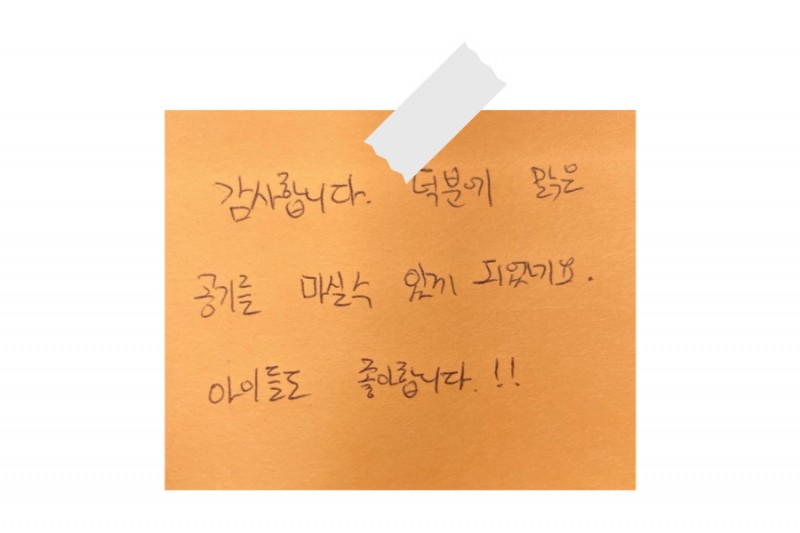 감사합니다. 덕분에 맑은
공기를 마실수 있게 되었네요.
아이들도 좋아합니다.!!